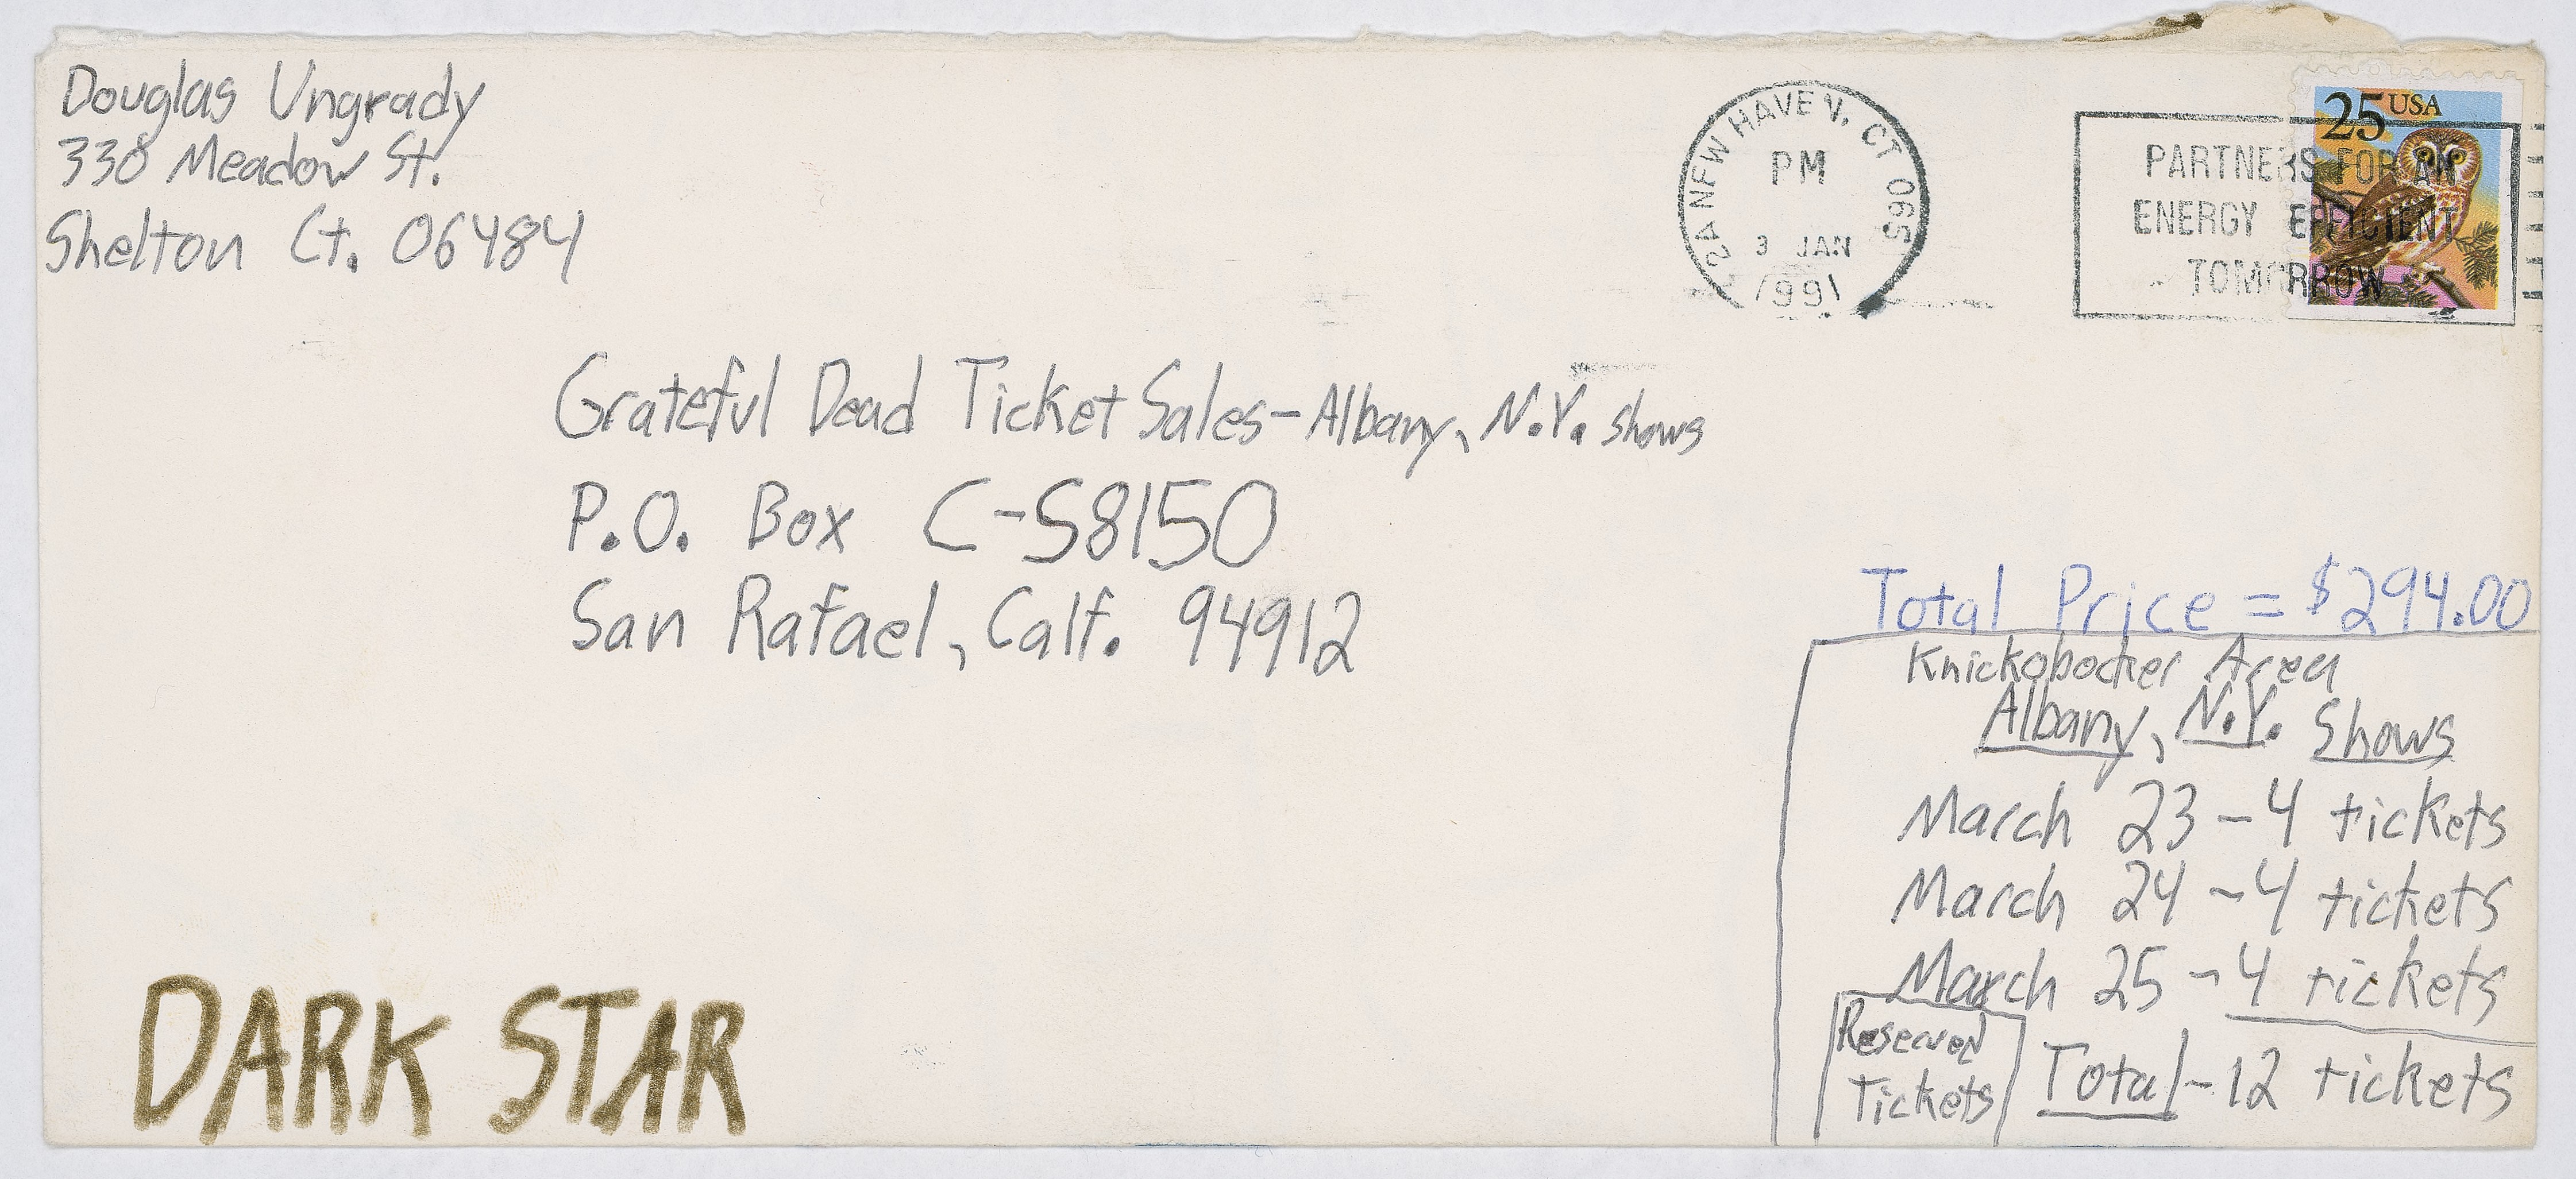 Douglas Ungrady
330 Meadow St.
Shelton Ct. 06484
NEW HAVEN, CT 065
PM
3 JAN
1991
25 USA
PARTNERS FOR AN
ENERGY EFFICIENT
TOMORROW
Grateful Dead Ticket Sales-Albany, N.Y. shows
P.O. Box C-S8150
San Rafael, Calf. 94912
Total Price = $294.00
Knickobocker Area
Albany, N.Y. Shows
March 23-4 tickets
March 24-4 tickets
March 25-4 tickets
Reserved
Tickets
Total-12 tickets
DARK STAR